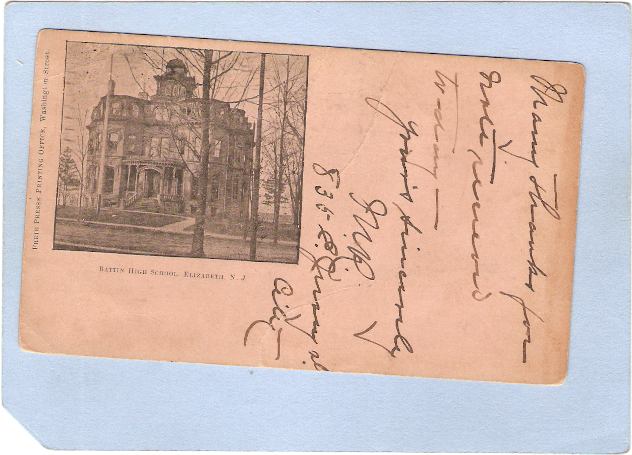 Many thanks for
note received
today —
Yours sincerely
M.P.
835 E. Jersey st
City
BATTIN HIGH SCHOOL, ELIZABETH, N. J.
PRINTING OFFICE, Washington Street.